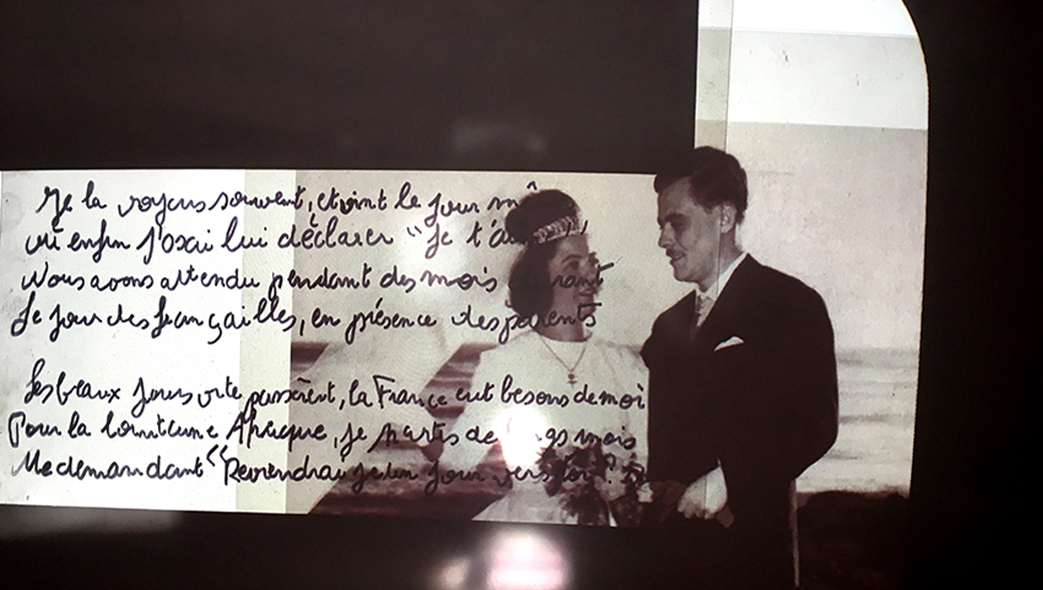 Je la voyais souvent, et vint le jour
où enfin j'osai lui déclarer "Je t'ai
Nous avons attendu pendant des mois durant
Le jour des fiançailles, en présence des parents
Les beaux jours vite passèrent, la France eut besoins de moi
Pour la lointaine Afrique, je partis de longs mois
Me demandant "Reviendrai je un jour vers toi?